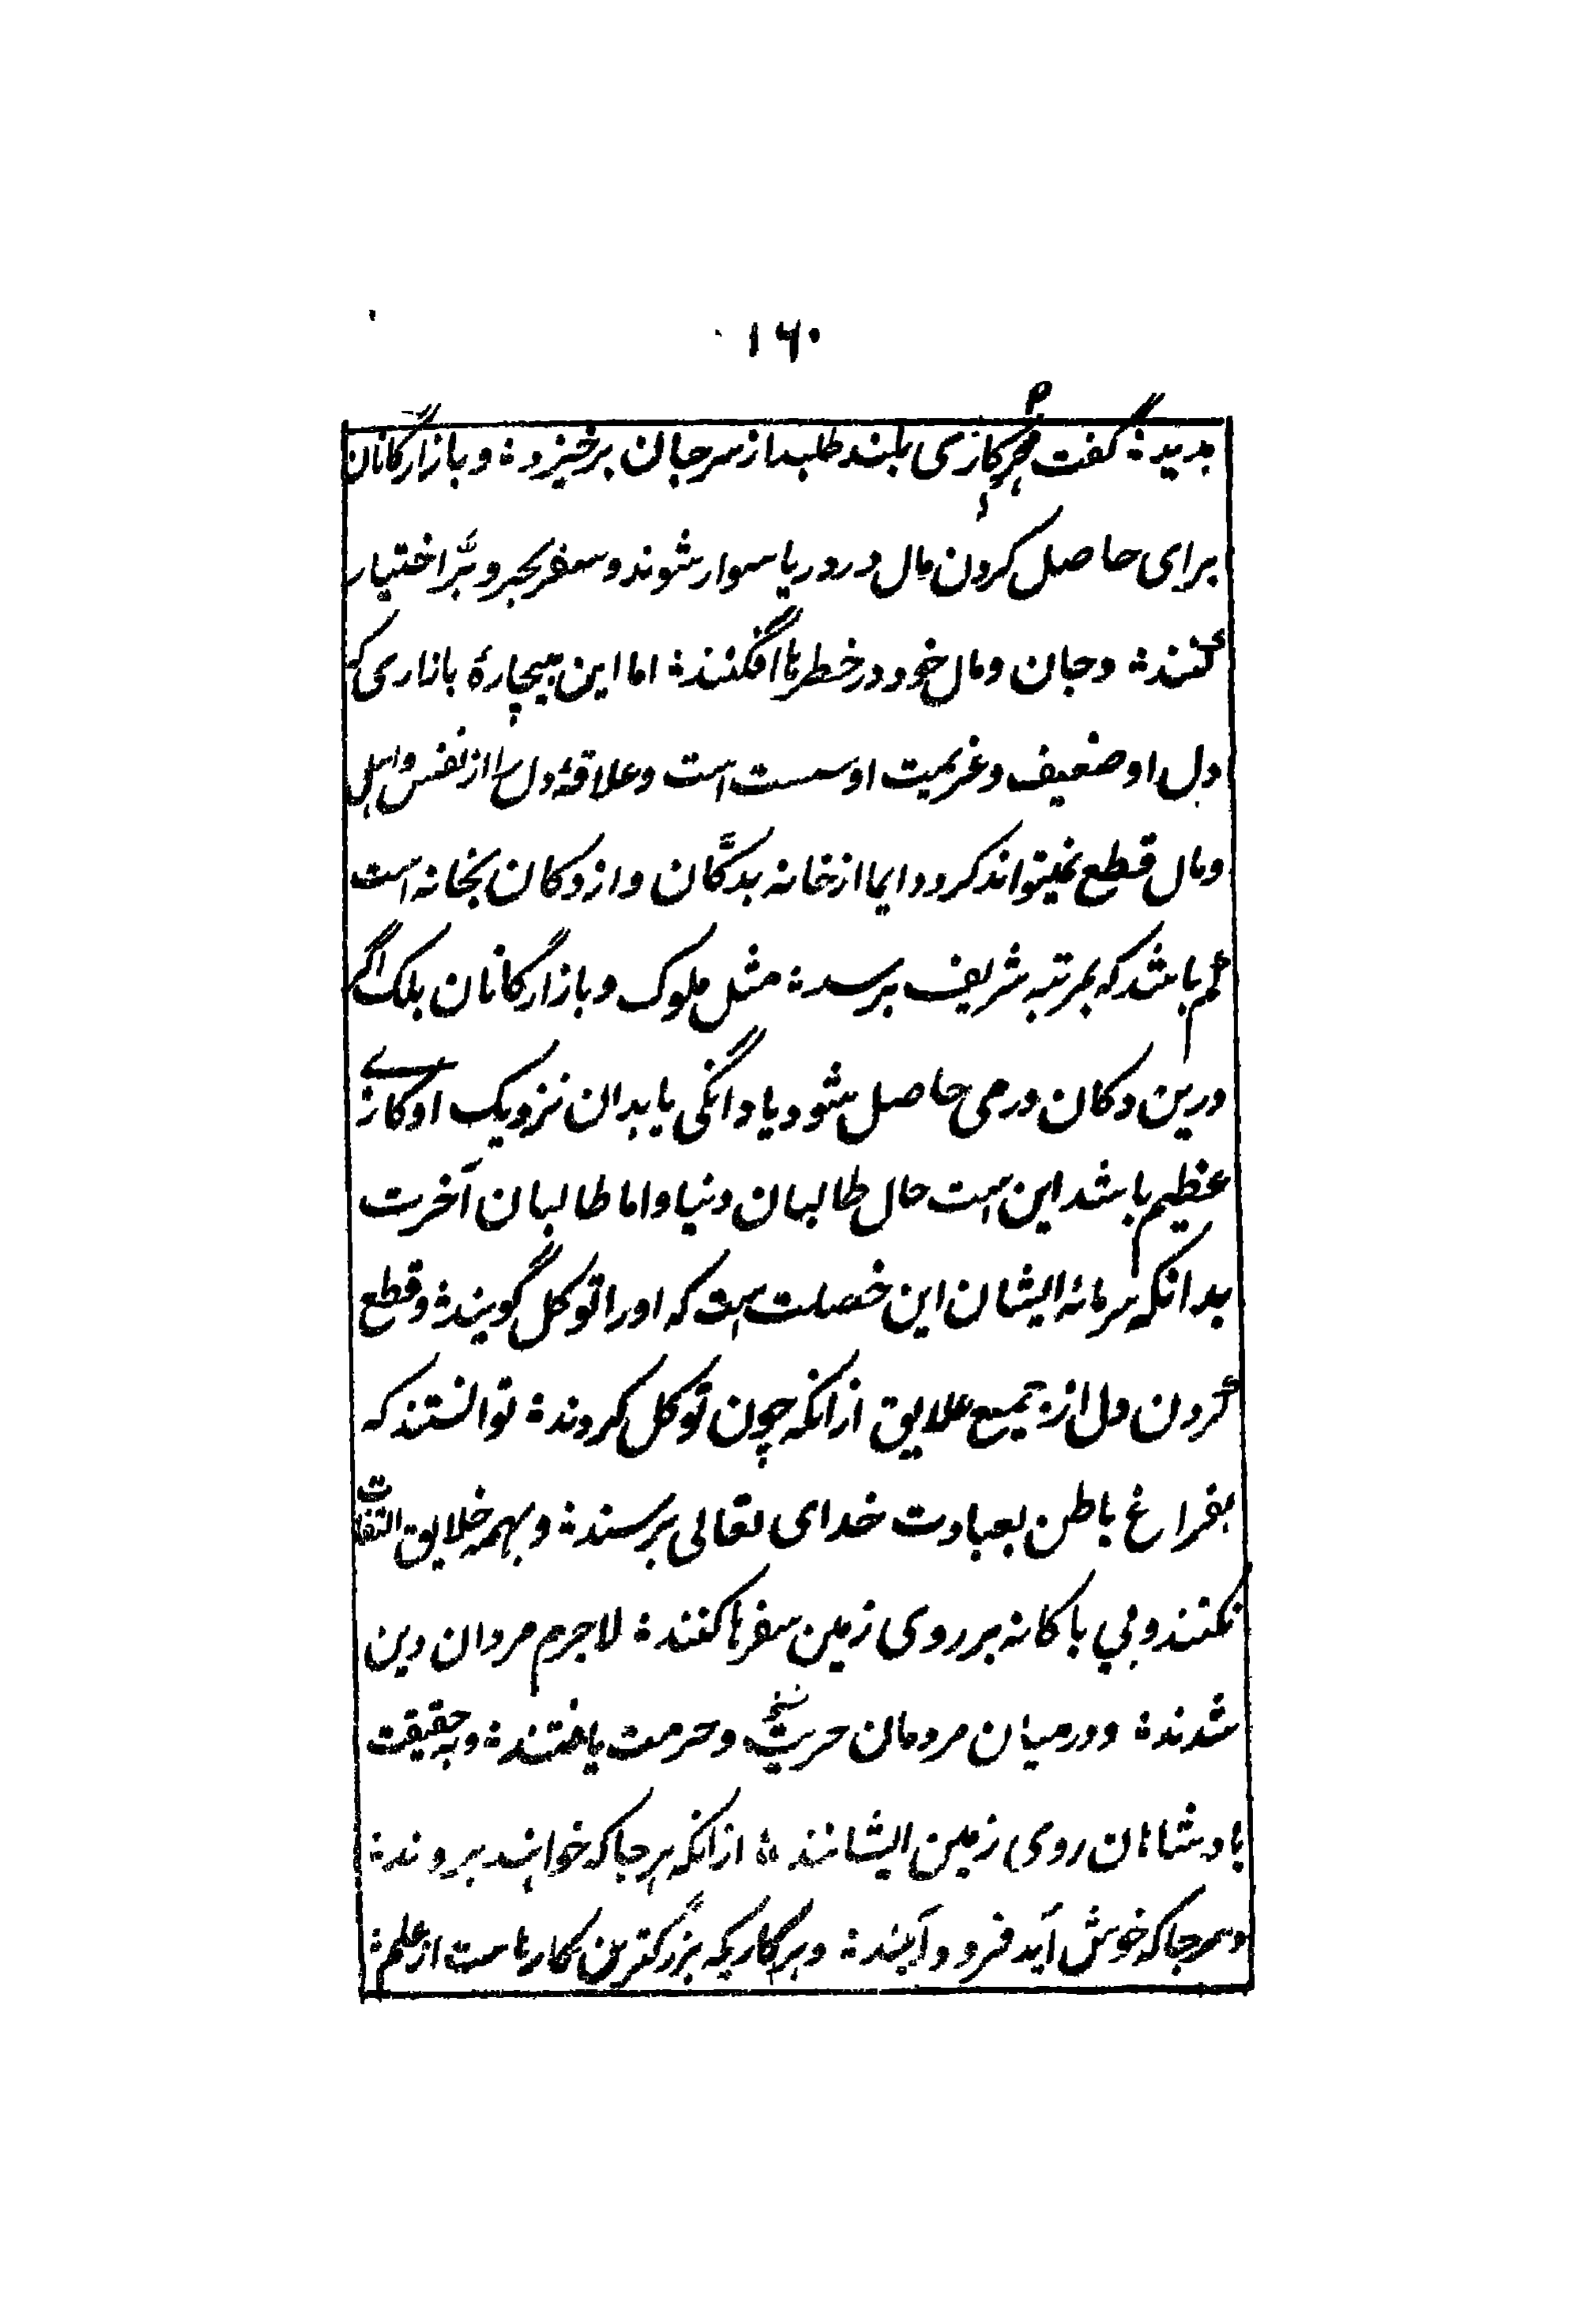 ۱۶۰
بدید؛ گفت هرکه کاری بلند طلبد از سر جان برخیزد؛ و بازارگانان
برای حاصل کردن مال در دریا سوار شوند و سفر بحر و بَرّ اختیار
کنند؛ و جان و مال خود در خطرها افگنند؛ اما این بیچارهٔ بازاری که
دل او ضعیف و عزیمت او سست است و علاقهٔ دل را از نفس و اہل
و مال قطع نمیتواند کرد دایما از خانه بدکّان و از دکان بخانه است
کم باشد که بمرتبه شریف برسد؛ مثل ملوک و بازارگانان بلک اگر
درین دکان درمی حاصل شود یا دانگی یابد آن نزدیک او کارے
عظیم باشد این است حال طالبان دنیا و اما طالبان آخرت
بدانکه سرمائهٔ ایشان این خصلت است که او را توکل گویند؛ و قطع
کردن دل از جمیع علایق ازانکه چون توکل کردند؛ توانستند که
بفراغ باطن بعبادت خدای تعالی برسند؛ و بهمه خلایق التفات
نکنند و بی باکانه بر روی زمین سفرها کنند؛ لاجرم مردان دین
شدند؛ و درمیان مردمان حریت و حرمت یافتند؛ و به حقیقت
بادشاهان روی زمین ایشانند؛ ازانکه هرجا که خواهند بروند؛
و ہرجا که خوش آید فرود آیند؛ و ہر کاریکه بزرگترین کارهاست از علم؛